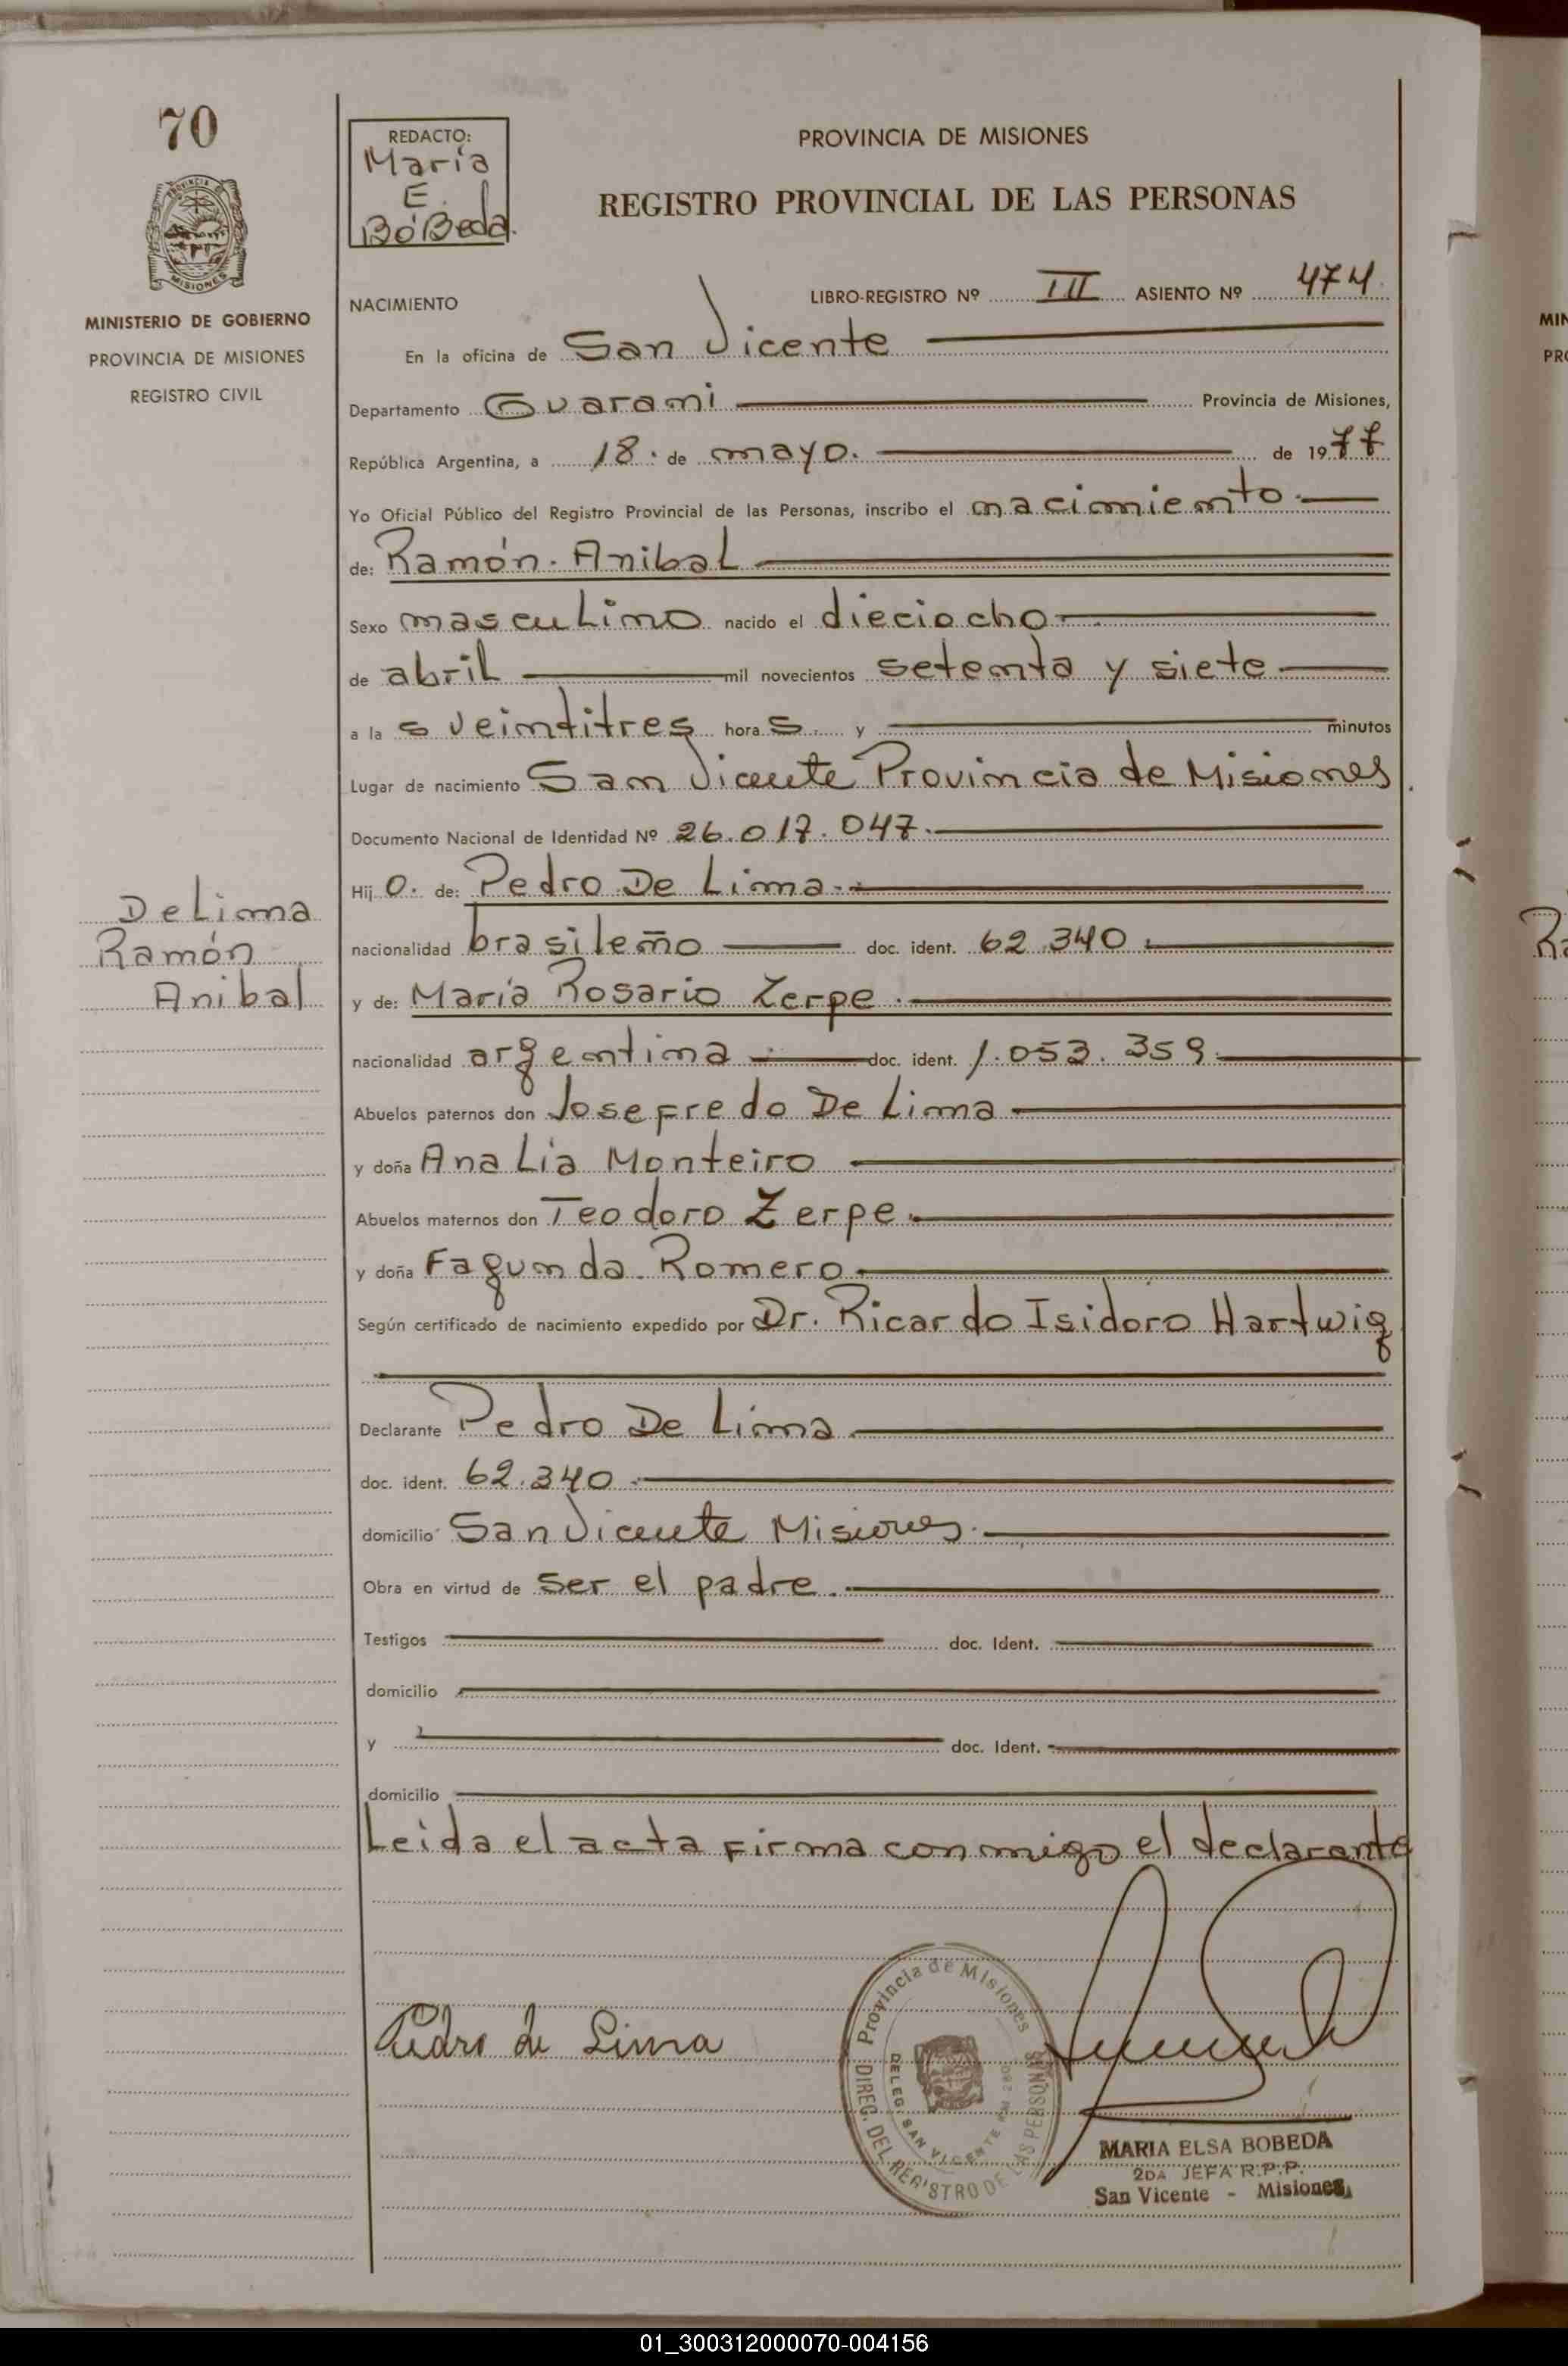 70
PROVINCIA DE
MISIONES
MINISTERIO DE GOBIERNO
PROVINCIA DE MISIONES
REGISTRO CIVIL
De Lima
Ramón
Anibal
REDACTO:
María
E.
BóBeda.
PROVINCIA DE MISIONES
REGISTRO PROVINCIAL DE LAS PERSONAS
NACIMIENTO LIBRO-REGISTRO Nº III ASIENTO Nº 474.
En la oficina de San Vicente
Departamento Guarani Provincia de Misiones,
República Argentina, a 18. de mayo. de 1977
Yo Oficial Público del Registro Provincial de las Personas, inscribo el nacimiento.
de: Ramón. Anibal
Sexo masculino nacido el dieciocho
de abril mil novecientos setenta y siete
a la s veintitres hora s. y minutos
Lugar de nacimiento San Vicente Provincia de Misiones.
Documento Nacional de Identidad Nº 26.017.047.
Hij o. de: Pedro De Lima.
nacionalidad brasileño doc. ident. 62.340.
y de: María Rosario Zerpe.
nacionalidad argentina doc. ident. 1.053.359.
Abuelos paternos don Josefredo De Lima
y doña Ana Lía Monteiro
Abuelos maternos don Teodoro Zerpe.
y doña Fagunda. Romero.
Según certificado de nacimiento expedido por Dr. Ricardo Isidoro Hartwig
Declarante Pedro De Lima
doc. ident. 62.340.
domicilio San Vicente Misiones.
Obra en virtud de ser el padre.
Testigos doc. Ident.
domicilio
y doc. Ident.
domicilio
Leida el acta firma conmigo el declarante
Pedro de Lima
Provincia de Misiones
DIREG. DEL REGISTRO DE LAS PERSONAS
DELEG. SAN VICENTE
MARIA ELSA BOBEDA
2DA JEFA R.P.P.
San Vicente - Misiones
MIN
PRO
Ra
01_300312000070-004156